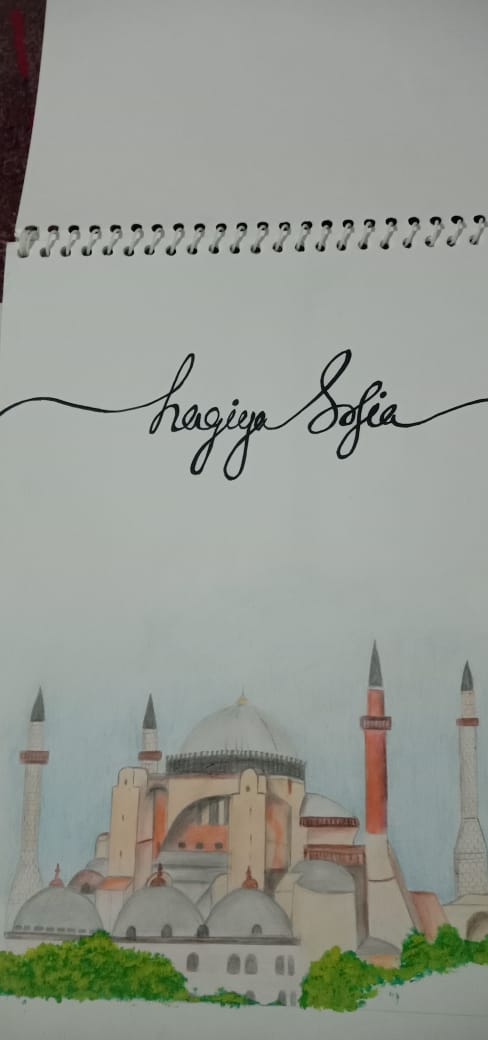 hagiya Sofia